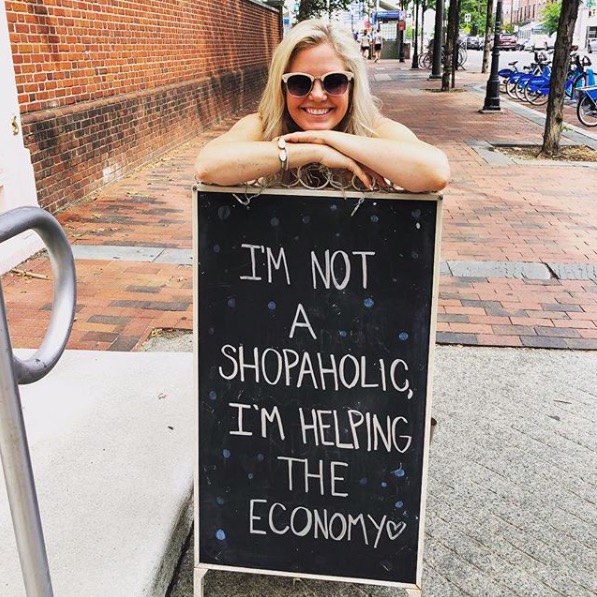 I'M NOT
A
SHOPAHOLIC,
I'M HELPING
THE
ECONOMY♡